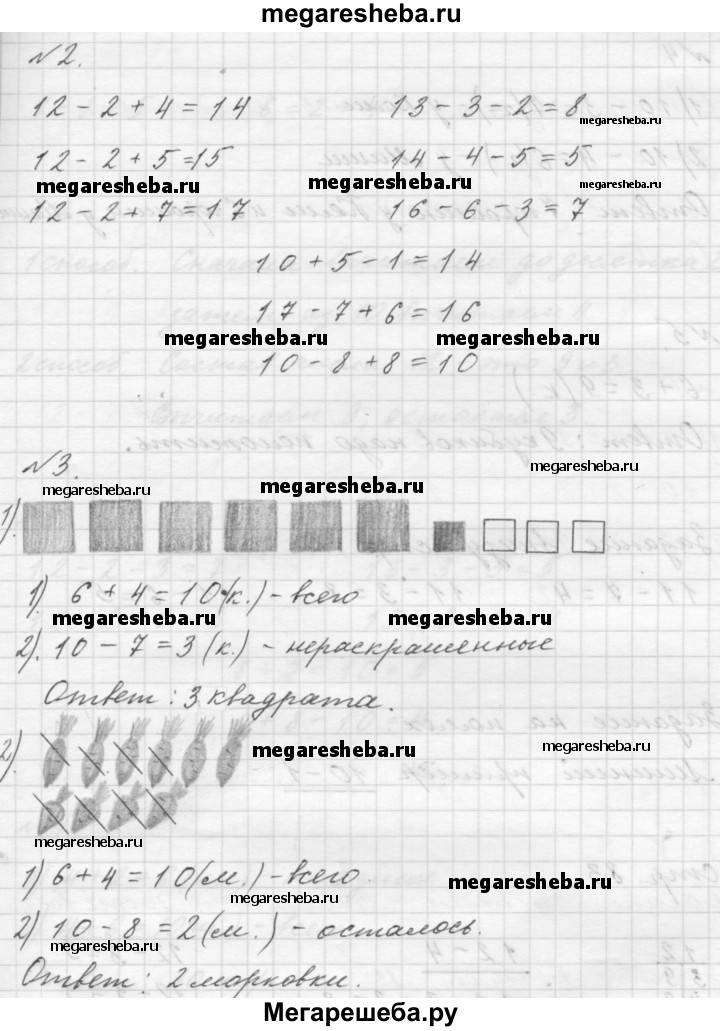 megaresheba.ru
№2.
12 - 2 + 4 = 14   13 - 3 - 2 = 8
megaresheba.ru
12 - 2 + 5 = 15   14 - 4 - 5 = 5
megaresheba.ru   megaresheba.ru   megaresheba.ru
12 - 2 + 7 = 17   16 - 6 - 3 = 7
10 + 5 - 1 = 14
17 - 7 + 6 = 16
megaresheba.ru   megaresheba.ru
10 - 8 + 8 = 10
№3.
megaresheba.ru
megaresheba.ru   megaresheba.ru
1).
1) 6 + 4 = 10 (к.) - всего
megaresheba.ru   megaresheba.ru
2). 10 - 7 = 3 (к.) - нераскрашенные
Ответ: 3 квадрата.
2).
megaresheba.ru   megaresheba.ru
megaresheba.ru
1) 6 + 4 = 10 (м.) - всего.
megaresheba.ru   megaresheba.ru
2) 10 - 8 = 2 (м.) - осталось.
megaresheba.ru
Ответ: 2 морковки.
Мегарешеба.ру